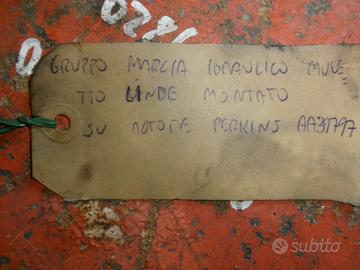 0280
0
GRUPPO MARCIA IDRAULICO MULE
TTO LINDE MONTATO
SU MOTORE PERKINS AA39797
subito